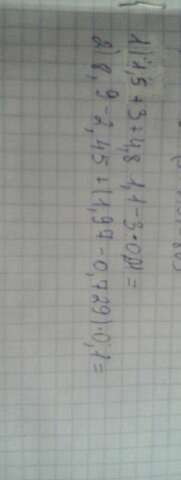 1) 1,5 + 3 + 4,8 · 1,1 - 3 · 0,21 =
2) 8,9 - 2,45 + (1,97 - 0,729) · 0,1 =